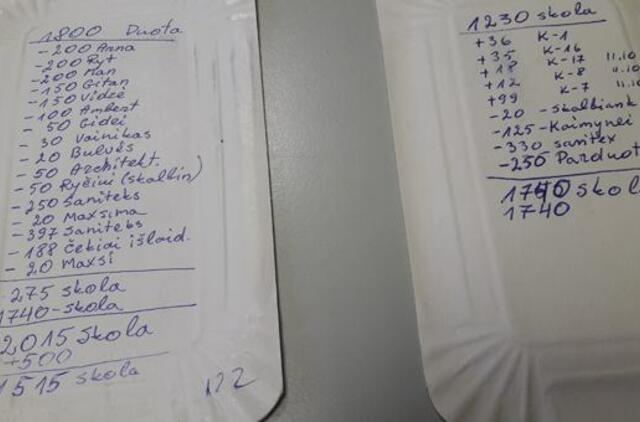 1800 Duota
-200 Anna
-200 Ryt
-200 Man
-150 Gitan
-150 Vidze
-100 Ambert
- 50 Gidei
- 30 Vainikas
- 20 Bulves
- 50 Architekt.
- 50 Ryčiui (skalbin)
- 250 Saniteks
- 20 Maxsima
- 397 Saniteks
- 188 Čekiai išlaid.
- 20 Maxsi
- 275 skola
1740 - skola
2015 skola
+500
1515 skola
122
1230 skola
+36 K-1
+35 K-16
+18 K-17 11.10
+12 K-8 11.10
+99 K-7 11.10
-20 - Skalbiank
-125 - Kaimynei
-330 sanitex
-250 Parduot
1740 skol
1740